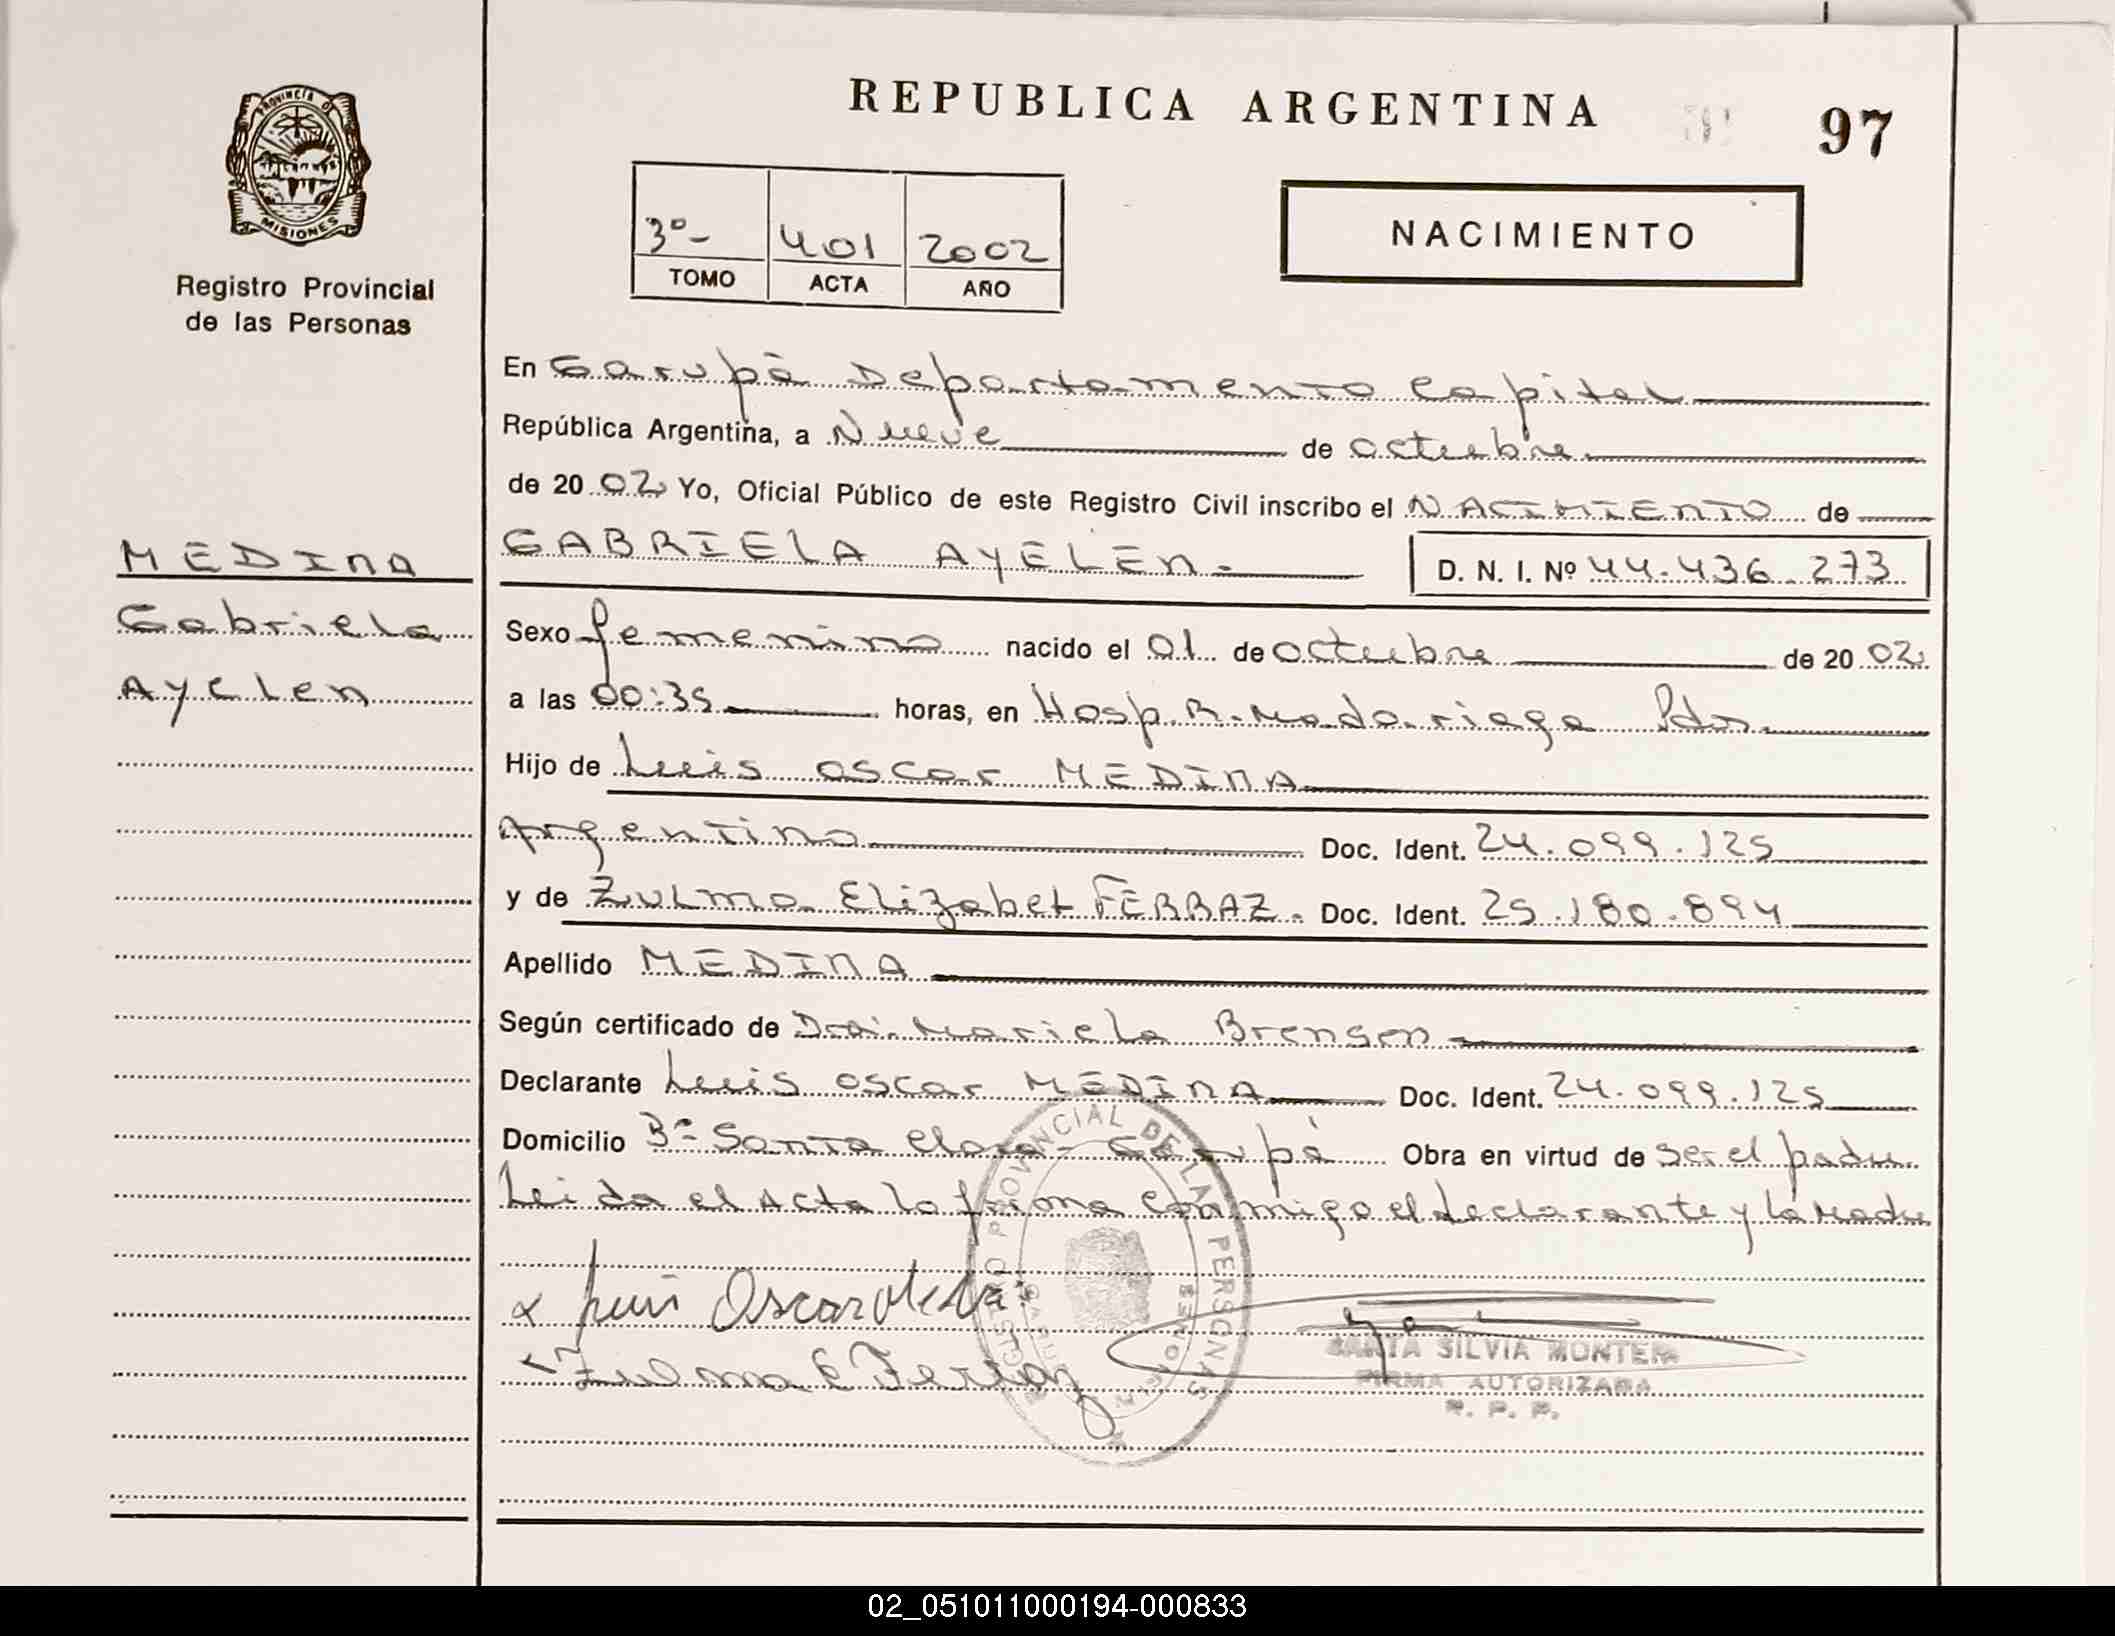 REPUBLICA ARGENTINA
97
PROVINCIA DE
MISIONES
Registro Provincial
de las Personas
3º- 401 2002
TOMO ACTA AÑO
NACIMIENTO
En Garupá Departamento Capital
República Argentina, a Nueve de octubre
de 2002 Yo, Oficial Público de este Registro Civil inscribo el NACIMIENTO de
MEDINA
Gabriela
Ayelen
GABRIELA AYELEN.- D. N. I. Nº 44.436.273
Sexo femenino nacido el 01 de octubre de 2002
a las 00:35 horas, en Hosp. R. Madariaga Pdas.
Hijo de Luis Oscar MEDINA
Argentino Doc. Ident. 24.099.125
y de Zulma Elizabet FERRAZ. Doc. Ident. 25.180.894
Apellido MEDINA
Según certificado de Dra. Mariela Brensen
Declarante Luis Oscar MEDINA Doc. Ident. 24.099.125
Domicilio Bº Santa Clara- Garupá Obra en virtud de ser el padre
Leida el Acta lo firma conmigo el declarante y la Madre
REGISTRO PROVINCIAL DE LAS PERSONAS
GARUPA
MISIONES
Luis Oscar Medina
Zulma E Ferraz
SANTA SILVIA MONTERO
FIRMA AUTORIZADA
R. P. P.
02_051011000194-000833